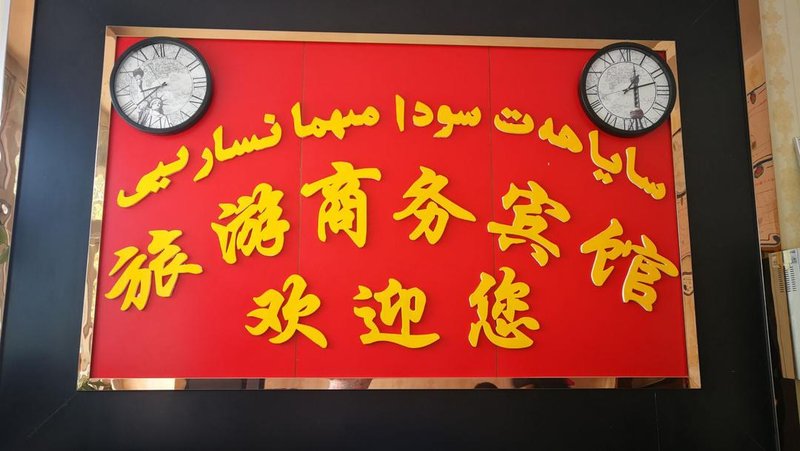 ساياھەت سودا مىھمانسارىيى
旅游商务宾馆
欢迎您